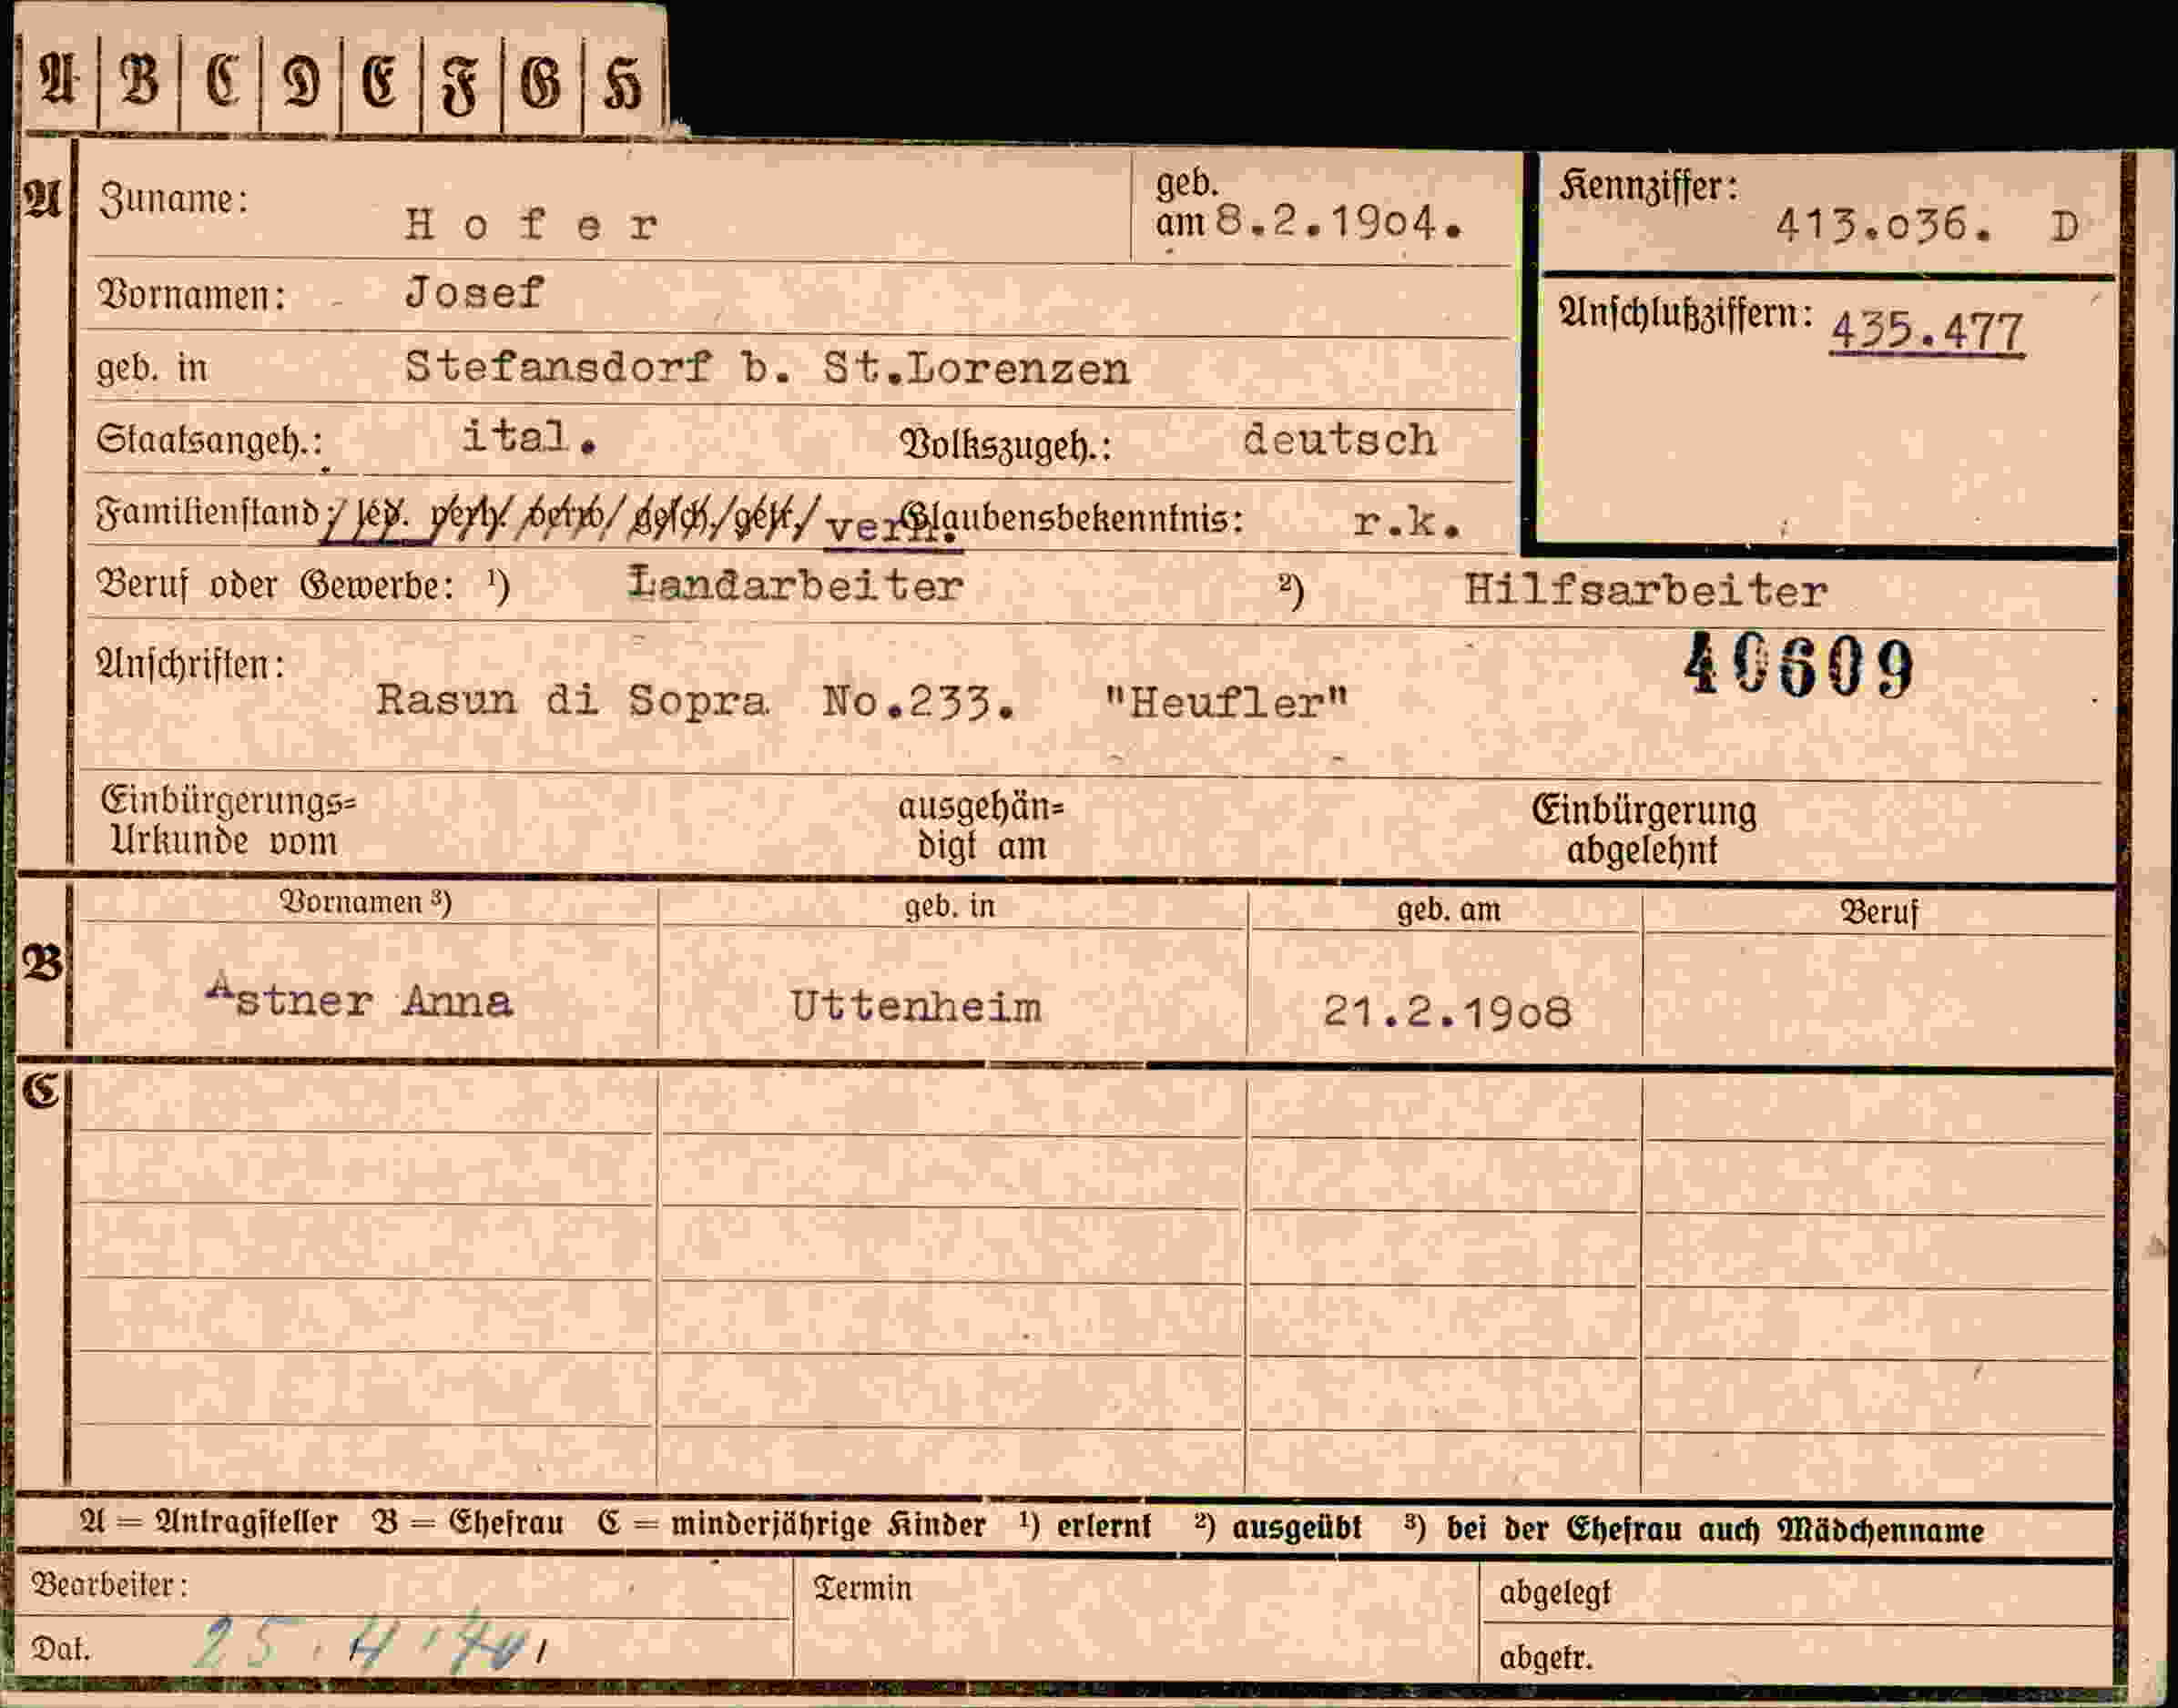 A B C D E F G H
A Zuname: Hofer geb. am 8.2.1904. Kennziffer: 413.036. D
Vornamen: Josef
Anschlußziffern: 435.477
geb. in Stefansdorf b. St.Lorenzen
Staatsangeh.: ital. Volkszugeh.: deutsch
Familienstand: led. verh. verw. gesch. getr. verh. Glaubensbekenntnis: r.k.
Beruf oder Gewerbe: ¹) Landarbeiter ²) Hilfsarbeiter
40609
Anschriften:
Rasun di Sopra No.233. "Heufler"
Einbürgerungs= ausgehän= Einbürgerung
Urkunde vom digt am abgelehnt
Vornamen ³) geb. in geb. am Beruf
B
Astner Anna Uttenheim 21.2.1908
C
A = Antragsteller B = Ehefrau C = minderjährige Kinder ¹) erlernt ²) ausgeübt ³) bei der Ehefrau auch Mädchenname
Bearbeiter: Termin abgelegt
Dat. 25.4.40 abgetr.